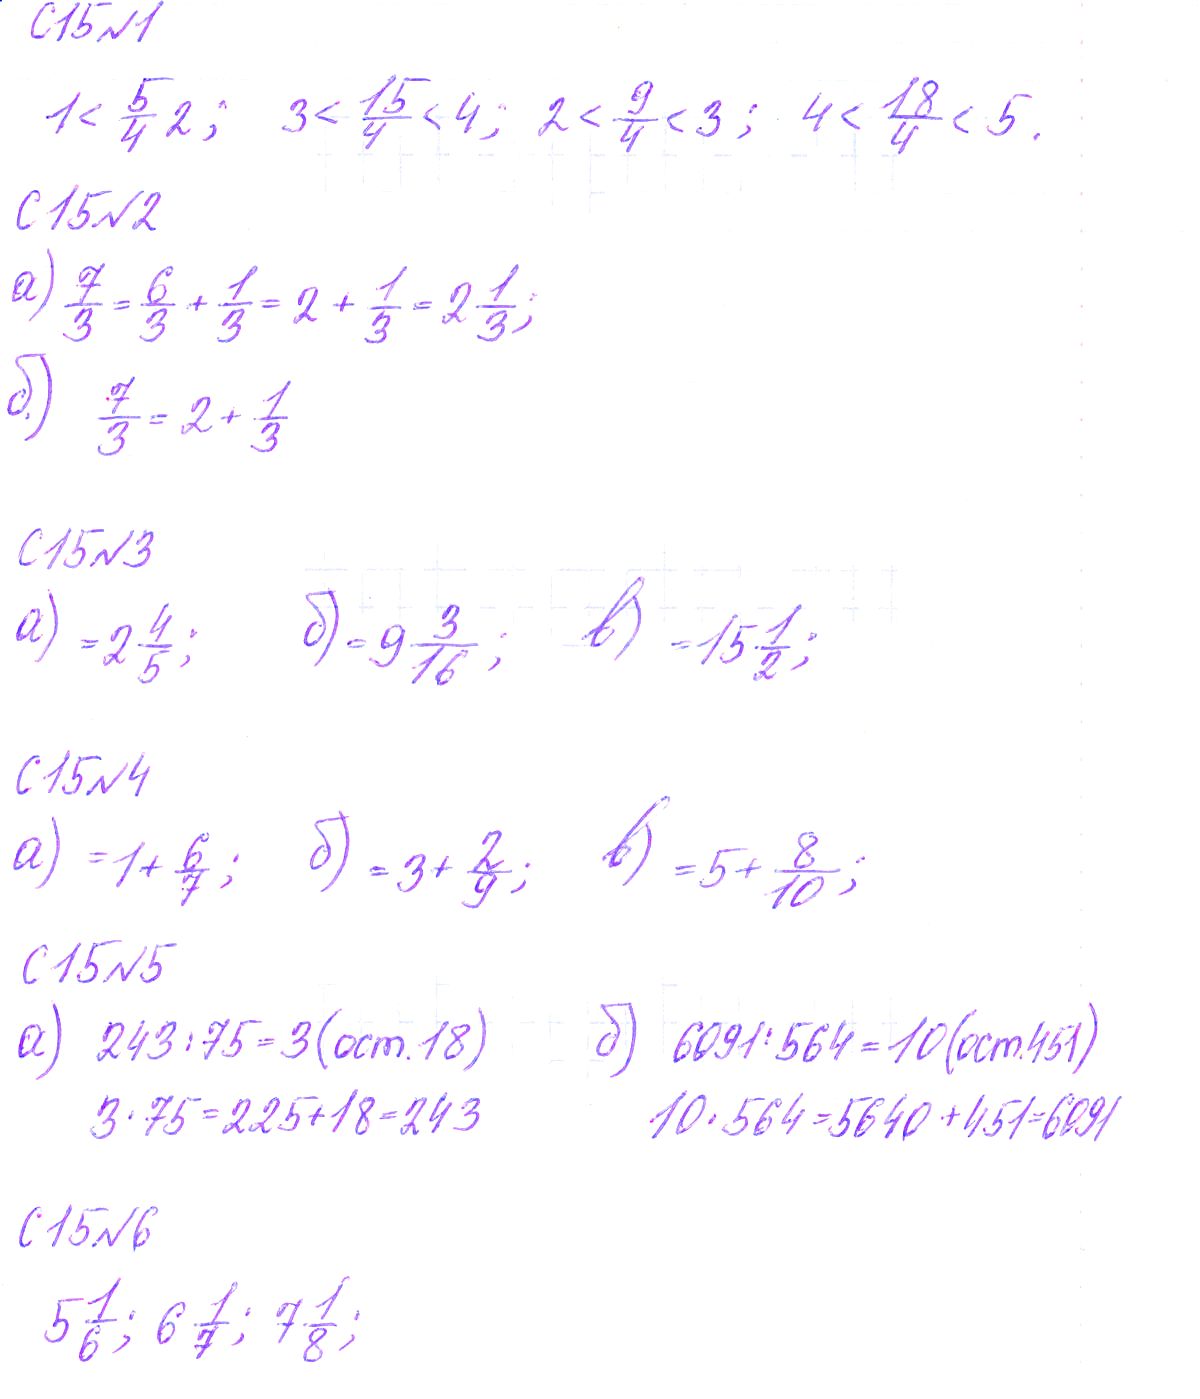 С15№1
1 < 5/4 2; 3 < 15/4 < 4; 2 < 9/4 < 3; 4 < 18/4 < 5.
С15№2
а) 7/3 = 6/3 + 1/3 = 2 + 1/3 = 2 1/3;
б) 7/3 = 2 + 1/3
С15№3
а) = 2 4/5; б) = 9 3/16; в) = 15 1/2;
С15№4
а) = 1 + 6/7; б) = 3 + 2/9; в) = 5 + 8/10;
С15№5
а) 243 : 75 = 3 (ост. 18) б) 6091 : 564 = 10 (ост. 451)
3 · 75 = 225 + 18 = 243 10 · 564 = 5640 + 451 = 6091
С15№6
5 1/6; 6 1/7; 7 1/8;